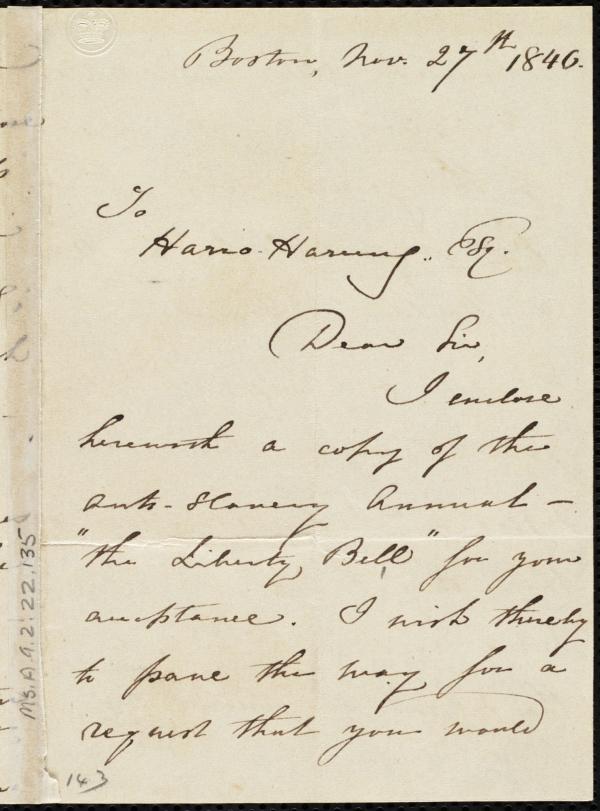 Boston, Nov. 27th 1846.
To
Harro-Harring, Esq.
Dear Sir,
I enclose
herewith a copy of the
anti-slavery Annual —
"the Liberty Bell" for your
acceptance. I wish thereby
to pave the way for a
request that you would
Ms.A.9.2:22.135
143